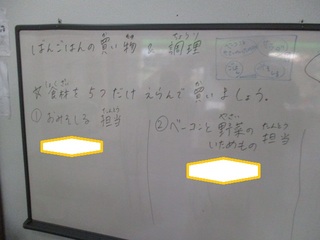 ばんごはんの買い物と調理
☆食材を5つだけえらんで買いましょう。
① おみそしる 担当
② ベーコンと野菜の
いためもの 担当